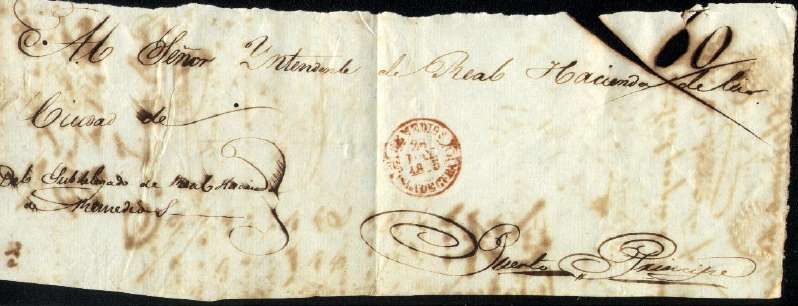 Al Señor Yntendente de Real Hacienda de la
60
Ciudad de
Del Subdelegado de Real Hacienda
de Remedios
Puerto Principe
REMEDIOS